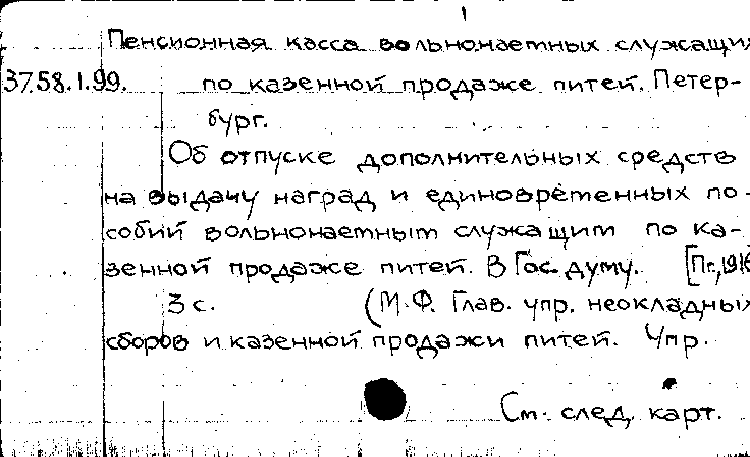 1
Пенсионная касса вольнонаемных служащих
37.58.1.99. по казенной продаже питей. Петер-
бург.
Об отпуске дополнительных средств
на выдачу наград и единовременных по-
собий вольнонаемным служащим по ка-
зенной продаже питей. В Гос. думу. [Пг., 1916
3 с. (М.Ф. Глав. упр. неокладных
сборов и казенной продажи питей. Упр.
См. след. карт.